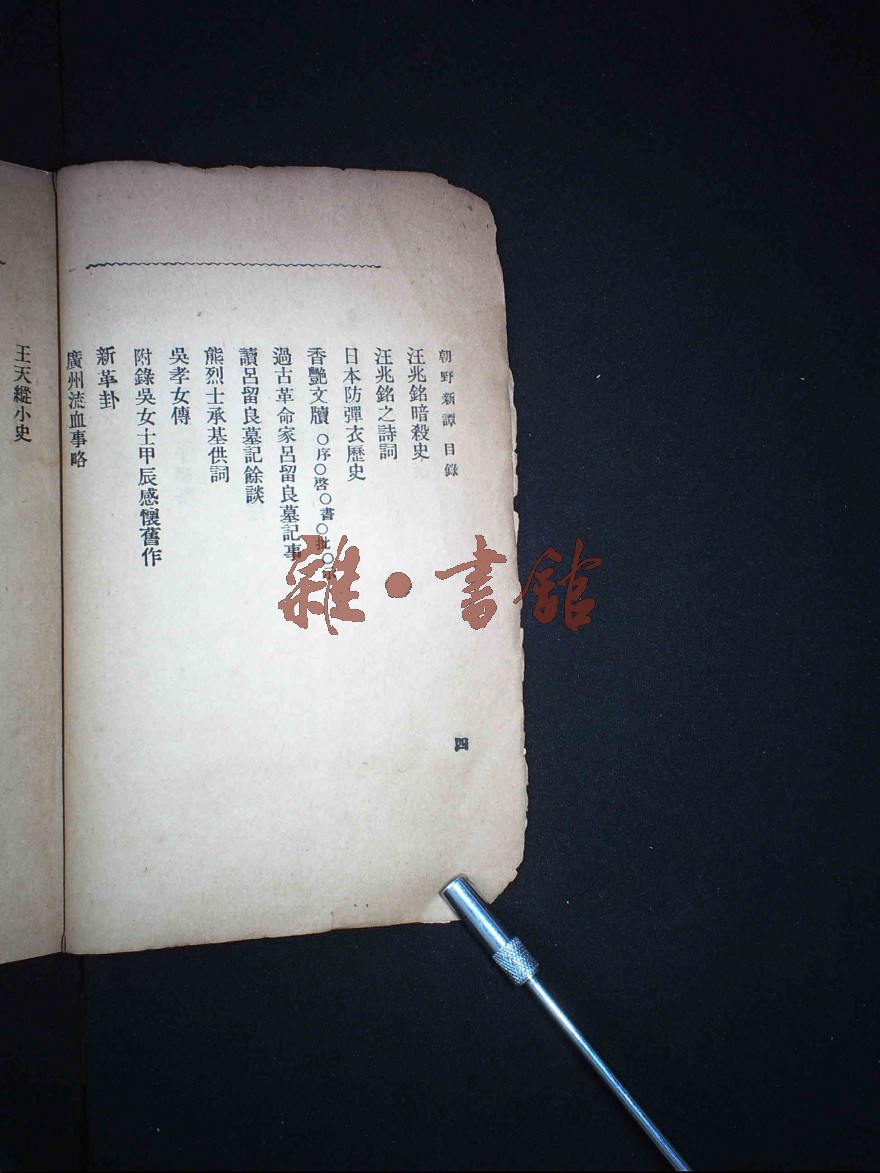 朝野新譚 目錄
汪兆銘暗殺史
汪兆銘之詩詞
日本防彈衣歷史
香艷文牘 ○序○啓○書○批○示
過古革命家呂留良墓記事
讀呂留良墓記餘談
熊烈士承基供詞
吳孝女傳
附錄吳女士甲辰感懷舊作
新革卦
廣州流血事略
四
王天縱小史
雜·書館